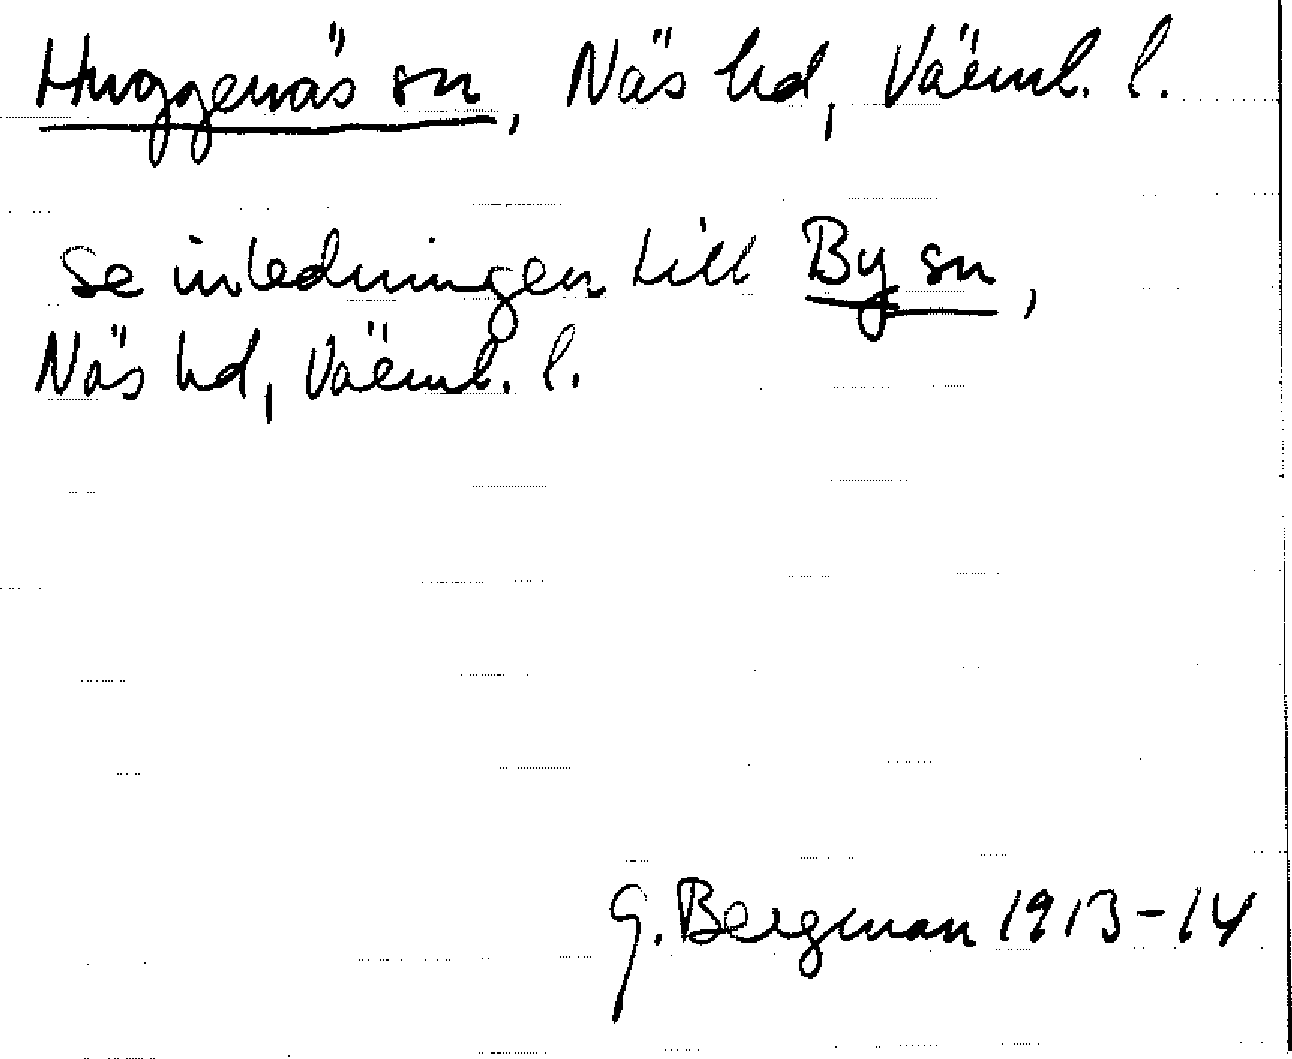 Huggenäs sn, Näs hd, Värml. l.
se inledningen till By sn,
Näs hd, Värml. l.
G. Bergman 1913-14